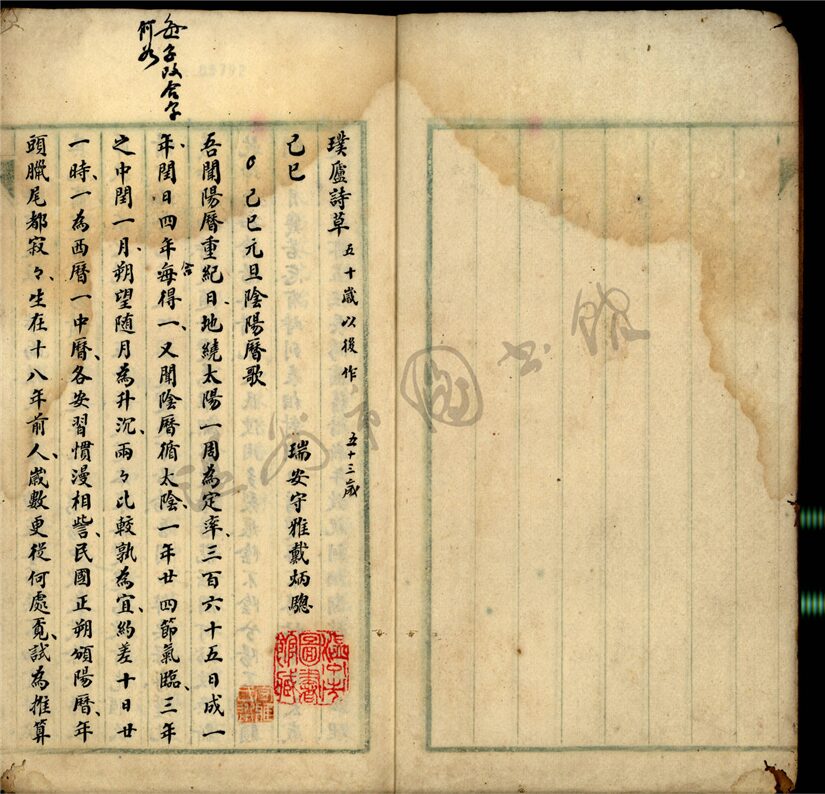 每子改合字
何如
璞廬詩草 五十歲以後作 五十三歲
己巳 瑞安守雅戴炳驄
己巳元旦陰陽曆歌
吾聞陽曆重紀日、地繞太陽一周為定率、三百六十五日成一
年、閏日四年每得一、又聞陰曆循太陰、一年廿四節氣臨、三年
合
之中閏一月、朔望隨月為升沉、兩々比較孰為宜、約差十日廿
一時、一為西曆一中曆、各安習慣漫相訾、民國正朔頒陽曆、年
頭臘尾都寂々、生在十八年前人、歲數更從何處覓、試為推算
溫州市圖書館
圖書館藏